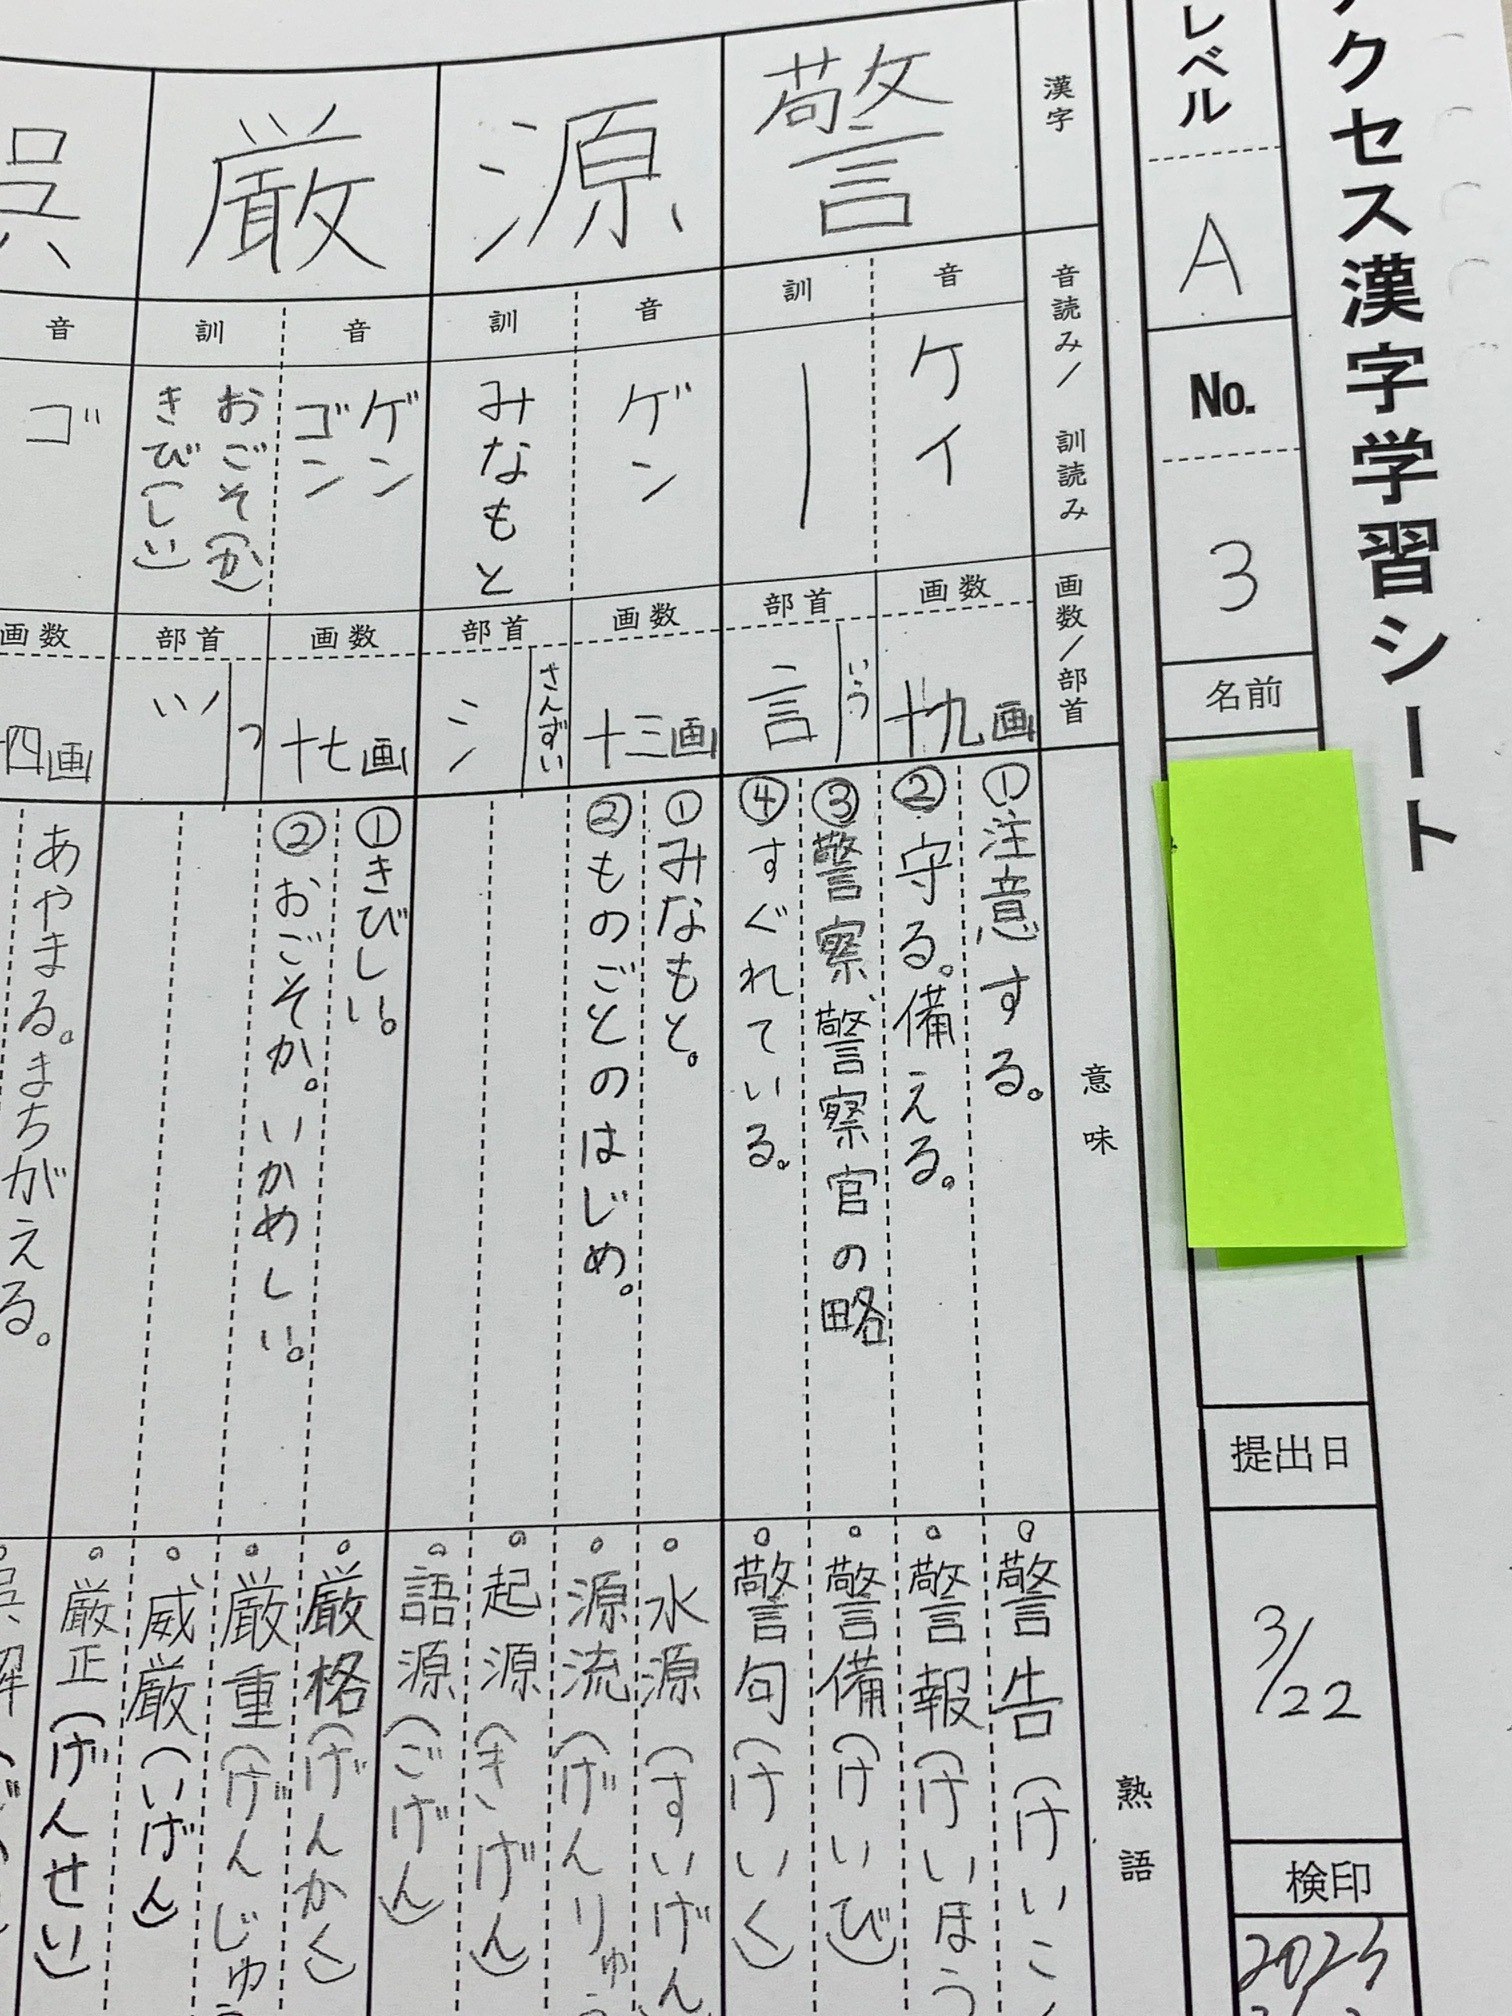 クセス漢字学習シート
レベル
A
No.
3
名前
提出日
3/22
検印
漢字
音読み/訓読み
画数/部首
意味
熟語
警
音
ケイ
訓
|
画数
十九画
部首
言
いう
①注意する。
②守る。備える。
③警察、警察官の略
④すぐれている。
。警告(けいこ
。警報(けいほう
。警備(けいび)
。警句(けいく)
源
音
ゲン
訓
みなもと
画数
十三画
部首
氵
さんずい
①みなもと。
②ものごとのはじめ。
。水源(すいげん
。源流(げんりゅう
。起源(きげん)
。語源(ごげん)
厳
音
ゲン
ゴン
訓
おごそ(か)
きび(しい)
画数
十七画
部首
⺍
つ
①きびしい。
②おごそか。いかめしい。
。厳格(げんかく)
。厳重(げんじゅう
。威厳(いげん)
。厳正(げんせい)
呉
音
ゴ
画数
十四画
あやまる。まちがえる。